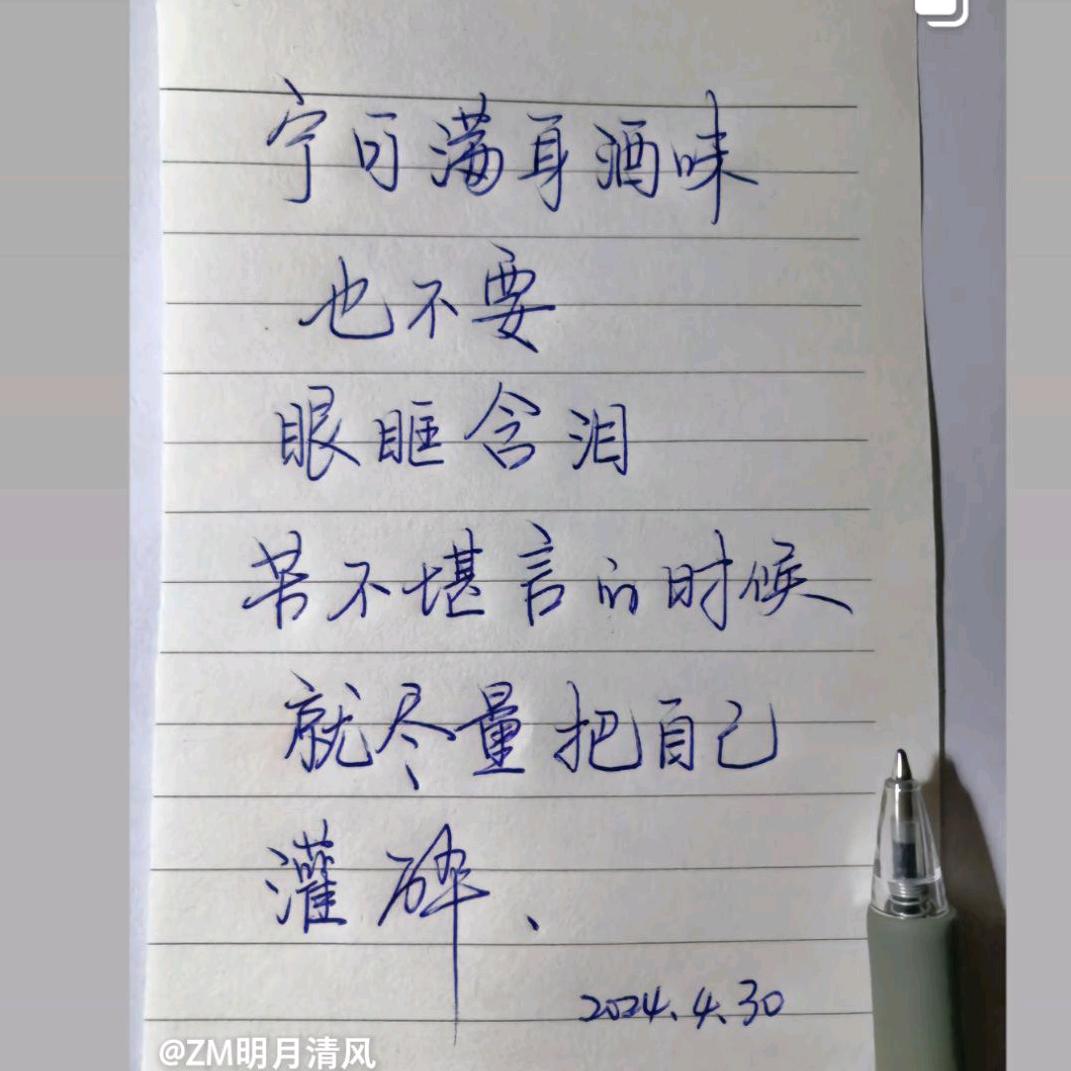 宁可满身酒味
也不要
眼眶含泪
苦不堪言的时候
就尽量把自己
灌碎、
2024.4.30
@ZM明月清风